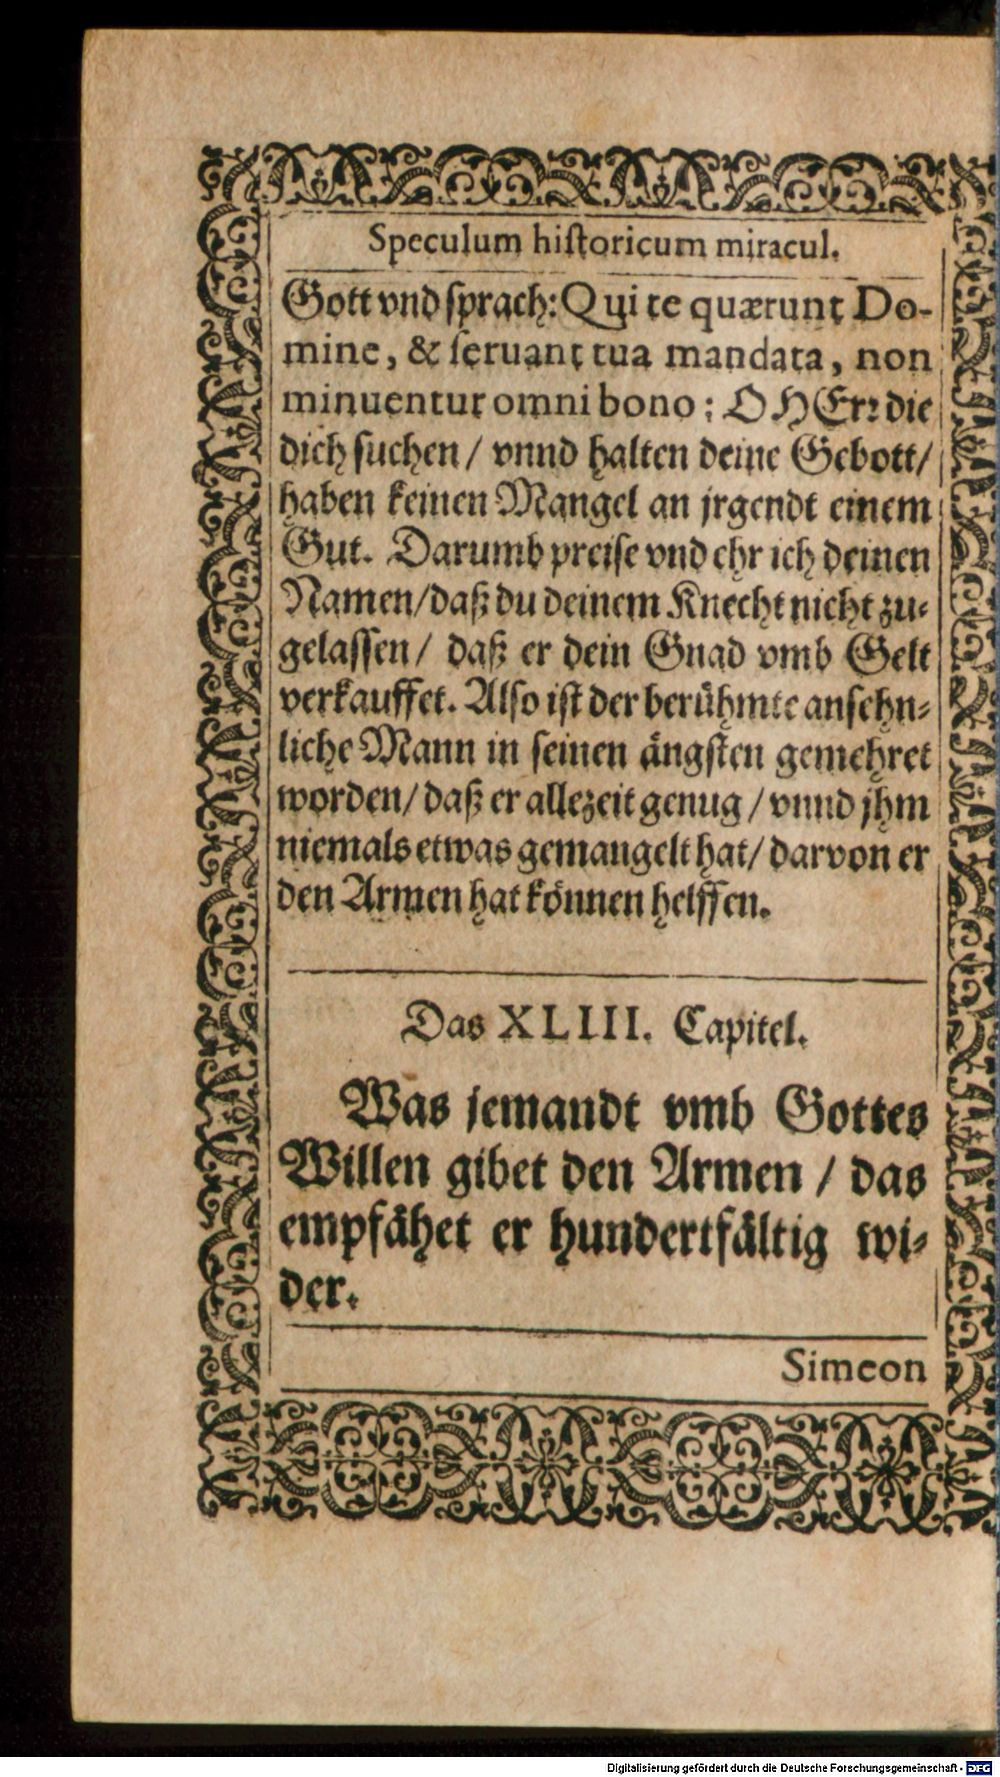 Speculum hiſtoricum miracul.
Gott vnd ſprach: Qui te quærunt Do-
mine, & ſeruant tua mandata, non
minuentur omni bono: O HErꝛ die
dich ſuchen / vnnd halten deine Gebott/
haben keinen Mangel an jrgendt einem
Gut. Darumb preiſe vnd ehr ich deinen
Namen/daß du deinem Knecht nicht zu-
gelaſſen/ daß er dein Gnad vmb Gelt
verkauffet. Alſo iſt der berühmte anſehn-
liche Mann in ſeinen ängſten gemehret
worden/ daß er allezeit genug / vnnd jhm
niemals etwas gemangelt hat/ darvon er
den Armen hat können helffen.
Das XLIII. Capitel.
Was jemandt vmb Gottes
Willen gibet den Armen / das
empfähet er hundertfältig wi-
der.
Simeon
Digitalisierung gefördert durch die Deutsche Forschungsgemeinschaft - DFG